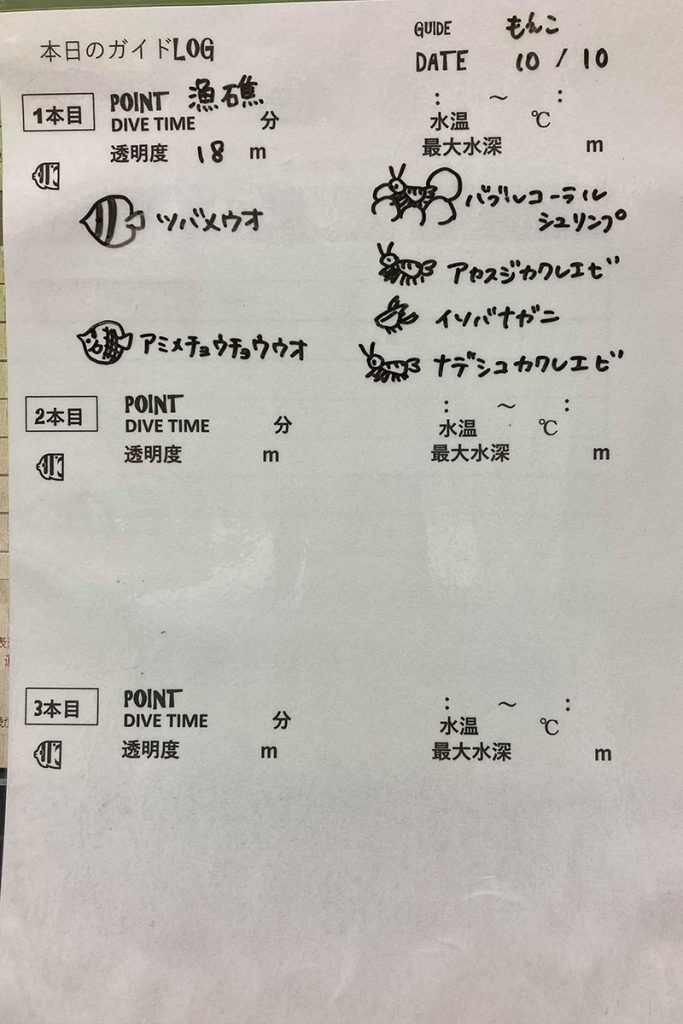 本日のガイドLOG
GUIDE もんこ
DATE 10 / 10
1本目 POINT 漁礁 : ～ :
DIVE TIME 分 水温 ℃
透明度 18 m 最大水深 m
ツバメウオ
バブルコーラル
シュリンプ
アカスジカクレエビ
イソバナガニ
アミメチョウチョウウオ
ナデシコカクレエビ
2本目 POINT : ～ :
DIVE TIME 分 水温 ℃
透明度 m 最大水深 m
3本目 POINT : ～ :
DIVE TIME 分 水温 ℃
透明度 m 最大水深 m